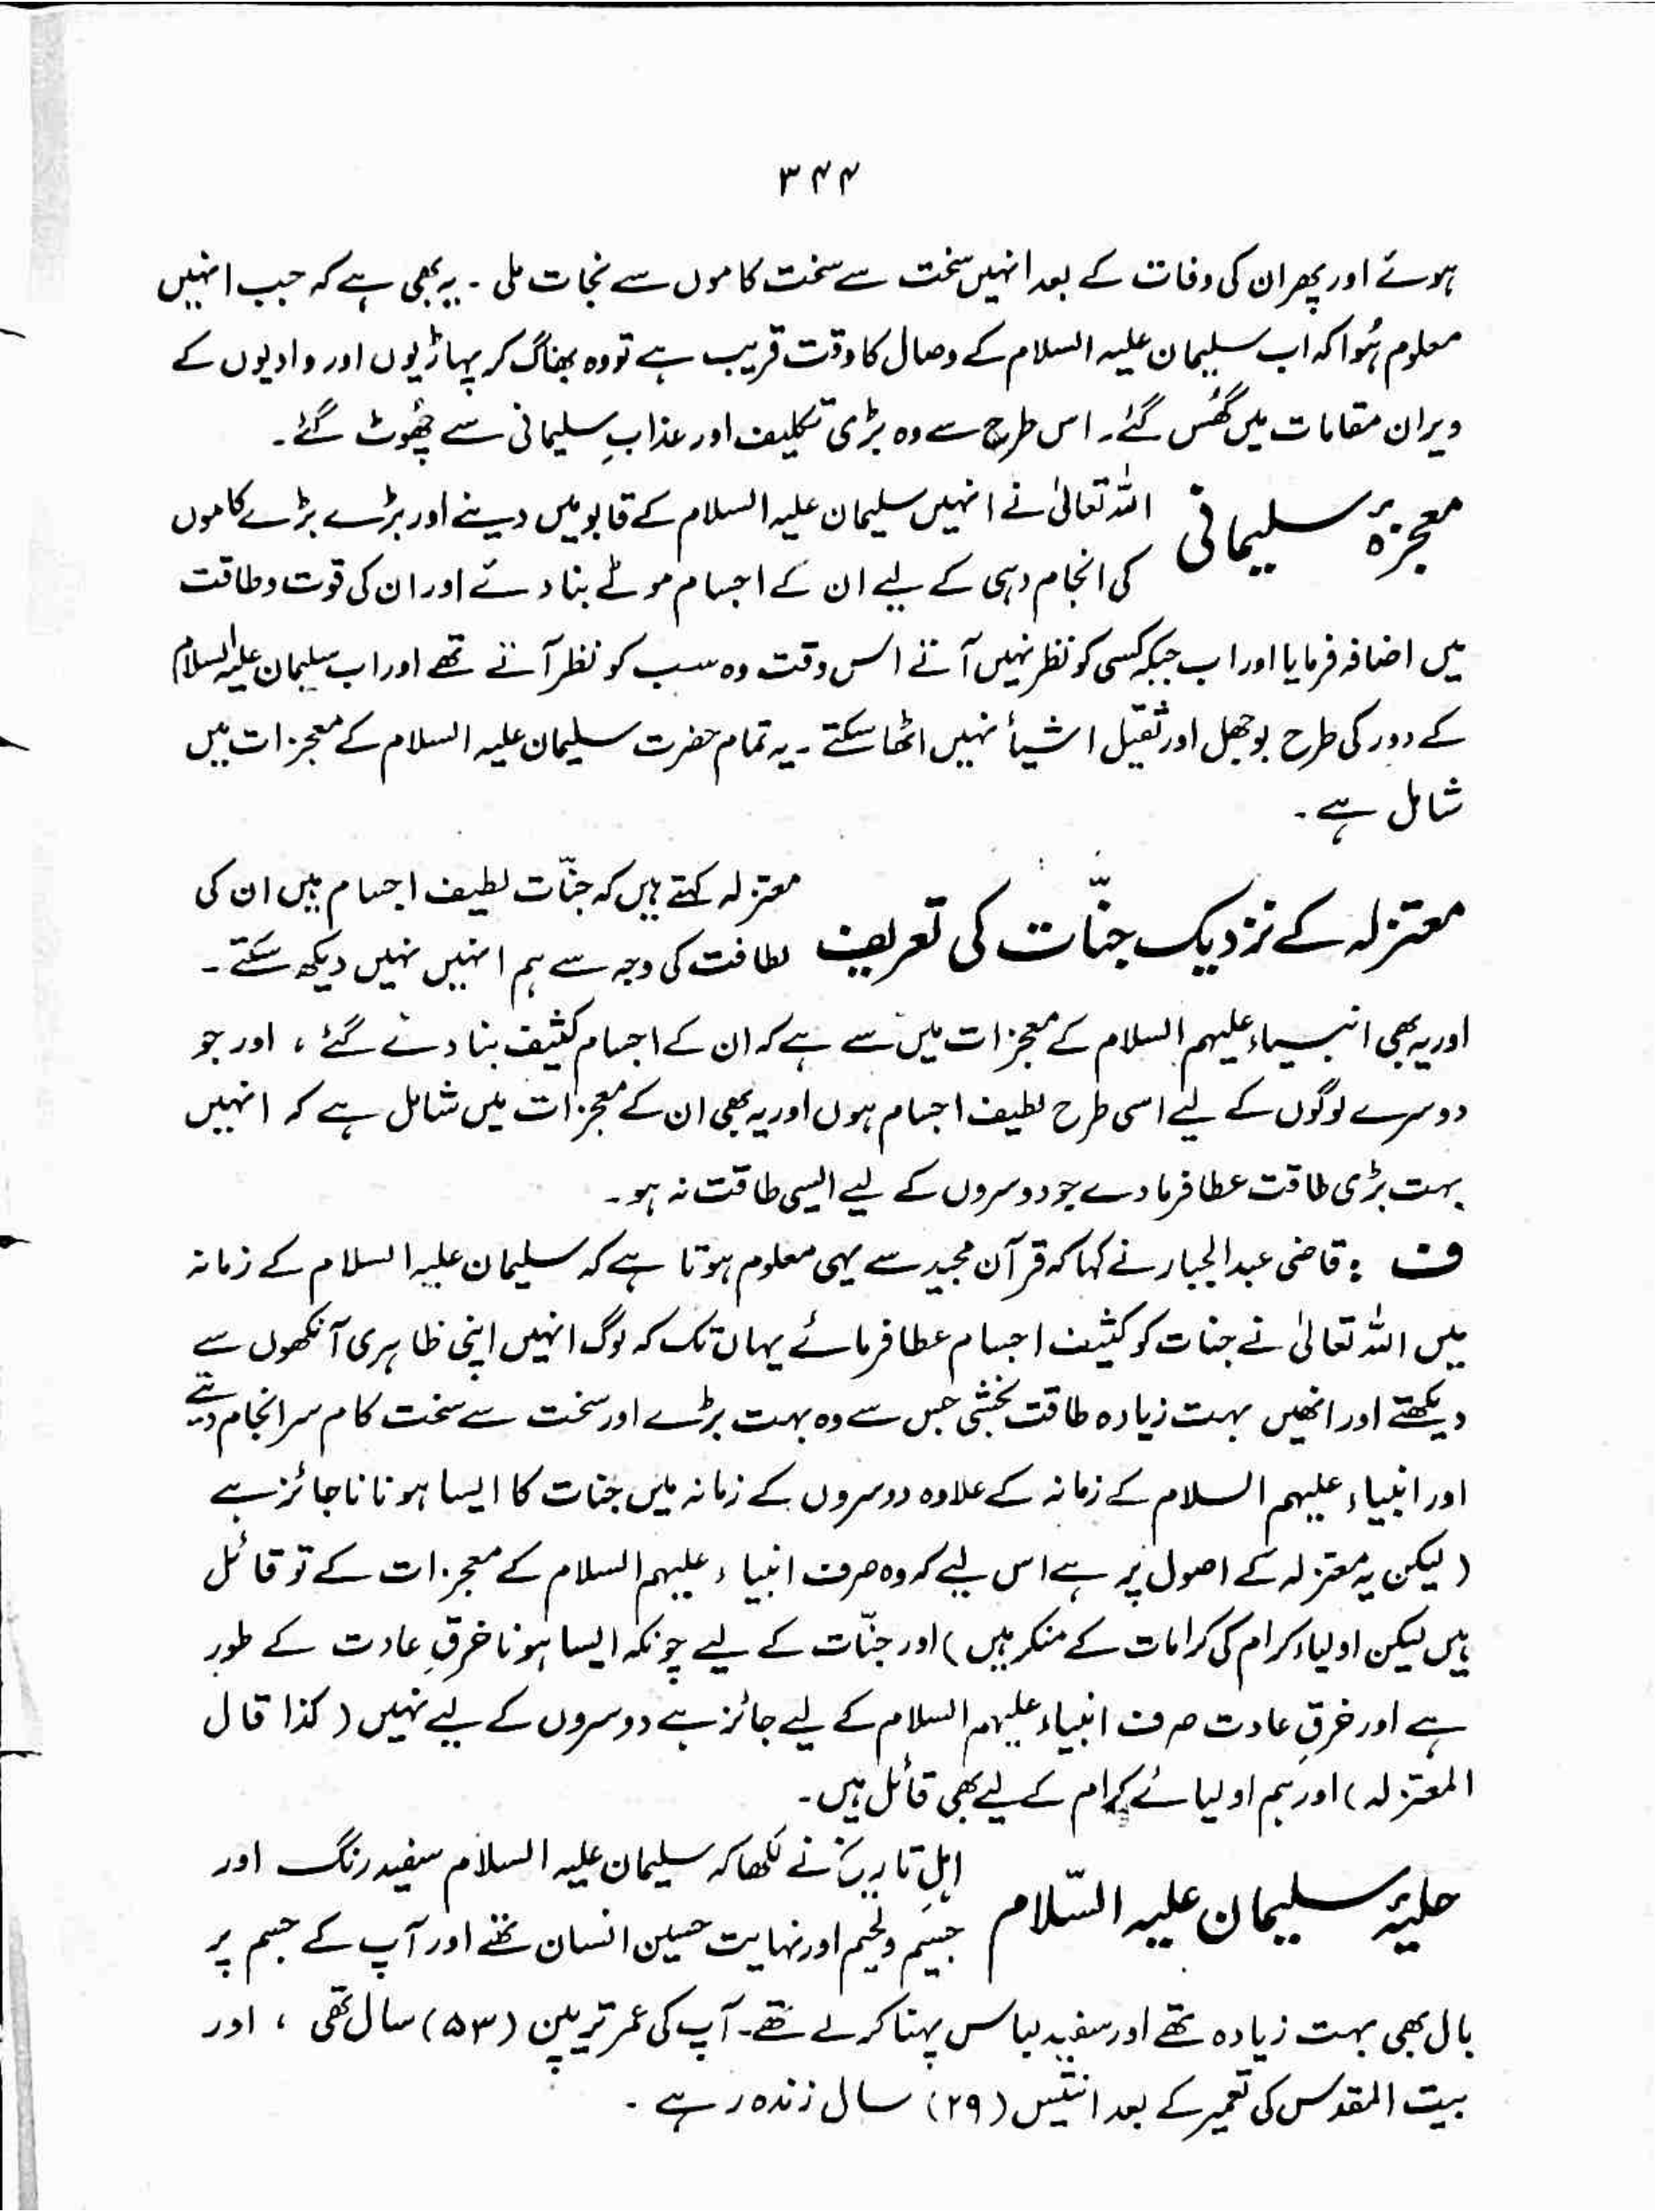 ۳۴۴
ہوئے اور پھر ان کی وفات کے بعد انہیں سخت سے سخت کاموں سے نجات ملی ۔ یہ بھی ہے کہ جب انہیں
معلوم ہُوا کہ اب سلیمان علیہ السلام کے وصال کا وقت قریب ہے تو وہ بھاگ کر پہاڑیوں اور وادیوں کے
ویران مقامات میں گھُس گئے۔ اس طرح سے وہ بڑی تکلیف اور عذابِ سلیمانی سے چھُوٹ گئے۔
معجزۂ سلیمانی
اللہ تعالیٰ نے انہیں سلیمان علیہ السلام کے قابو میں دینے اور بڑے بڑے کاموں
کی انجام دہی کے لیے ان کے اجسام موٹے بنا دئے اور ان کی قوت و طاقت
میں اضافہ فرمایا اور اب جبکہ کسی کو نظر نہیں آتے اس وقت وہ سب کو نظر آتے تھے اور اب سلیمان علیہ السلام
کے دور کی طرح بوجھل اور ثقیل اشیأ نہیں اٹھا سکتے ۔ یہ تمام حضرت سلیمان علیہ السلام کے معجزات میں
شامل ہے ۔
معتزلہ کے نزدیک جنّات کی تعریف
معتزلہ کہتے ہیں کہ جنّات لطیف اجسام ہیں ان کی
لطافت کی وجہ سے ہم انہیں نہیں دیکھ سکتے ۔
اور یہ بھی انبیاء علیہم السلام کے معجزات میں سے ہے کہ ان کے اجسام کثیف بنا دئے گئے ، اور جو
دوسرے لوگوں کے لیے اسی طرح لطیف اجسام ہوں اور یہ بھی ان کے معجزات میں شامل ہے کہ انہیں
بہت بڑی طاقت عطا فرما دے جو دوسروں کے لیے ایسی طاقت نہ ہو ۔
ف : قاضی عبدالجبار نے کہا کہ قرآن مجید سے یہی معلوم ہوتا ہے کہ سلیمان علیہ السلام کے زمانہ
میں اللہ تعالیٰ نے جنات کو کثیف اجسام عطا فرمائے یہاں تک کہ لوگ انہیں اپنی ظاہری آنکھوں سے
دیکھتے اور انھیں بہت زیادہ طاقت بخشی جس سے وہ بہت بڑے اور سخت سے سخت کام سرانجام دیتے
اور انبیاء علیہم السلام کے زمانہ کے علاوہ دوسروں کے زمانہ میں جنات کا ایسا ہونا ناجائز ہے
( لیکن یہ معتزلہ کے اصول پر ہے اس لیے کہ وہ صرف انبیاء علیہم السلام کے معجزات کے تو قائل
ہیں لیکن اولیاء کرام کی کرامات کے منکر ہیں ) اور جنّات کے لیے چونکہ ایسا ہونا خرقِ عادت کے طور
ہے اور خرقِ عادت صرف انبیاء علیہم السلام کے لیے جائز ہے دوسروں کے لیے نہیں ( کذا قال
المعتزلہ ) اور ہم اولیائے کرام کے لیے بھی قائل ہیں ۔
حلیۂ سلیمان علیہ السّلام
اہلِ تاریخ نے لکھا کہ سلیمان علیہ السلام سفید رنگ اور
جسیم و لحیم اور نہایت حسین انسان تھے اور آپ کے جسم پر
بال بھی بہت زیادہ تھے اور سفید لباس پہنا کرتے تھے۔ آپ کی عمر ترپین (۵۳) سال تھی ، اور
بیت المقدس کی تعمیر کے بعد انتیس (۲۹) سال زندہ رہے ۔